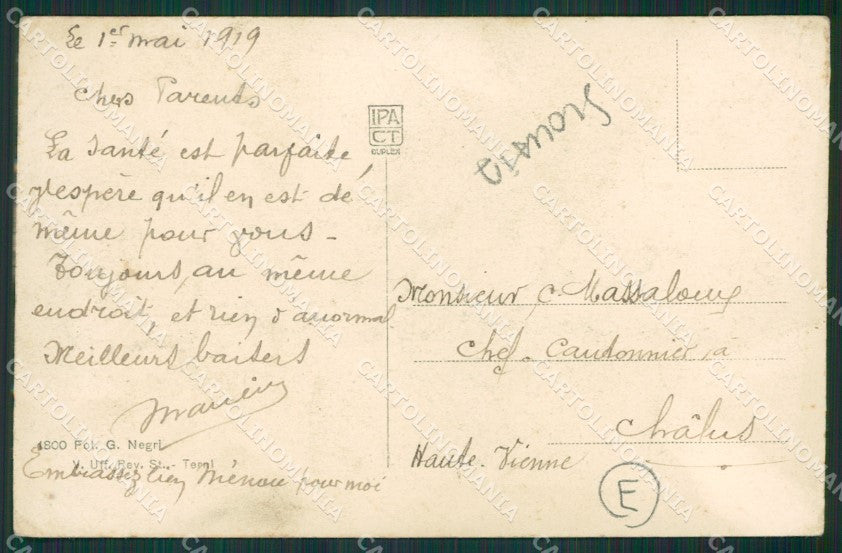 Le 1er mai 1919
Chers Parents
La santé est parfaite,
j'espère qu'il en est de
même pour vous -
Toujours, au même
endroit, et rien d'anormal
Meilleurs baisers
4800 Fot. G. Negri
V. Uff. Rev. St. - Terni
Embrassez bien pour moi
IPA
CT
DUPLEX
Monsieur C. Massaloux
Chef - Cantonnier, à
Châlus
Haute-Vienne
E
CARTOLINOMANIA